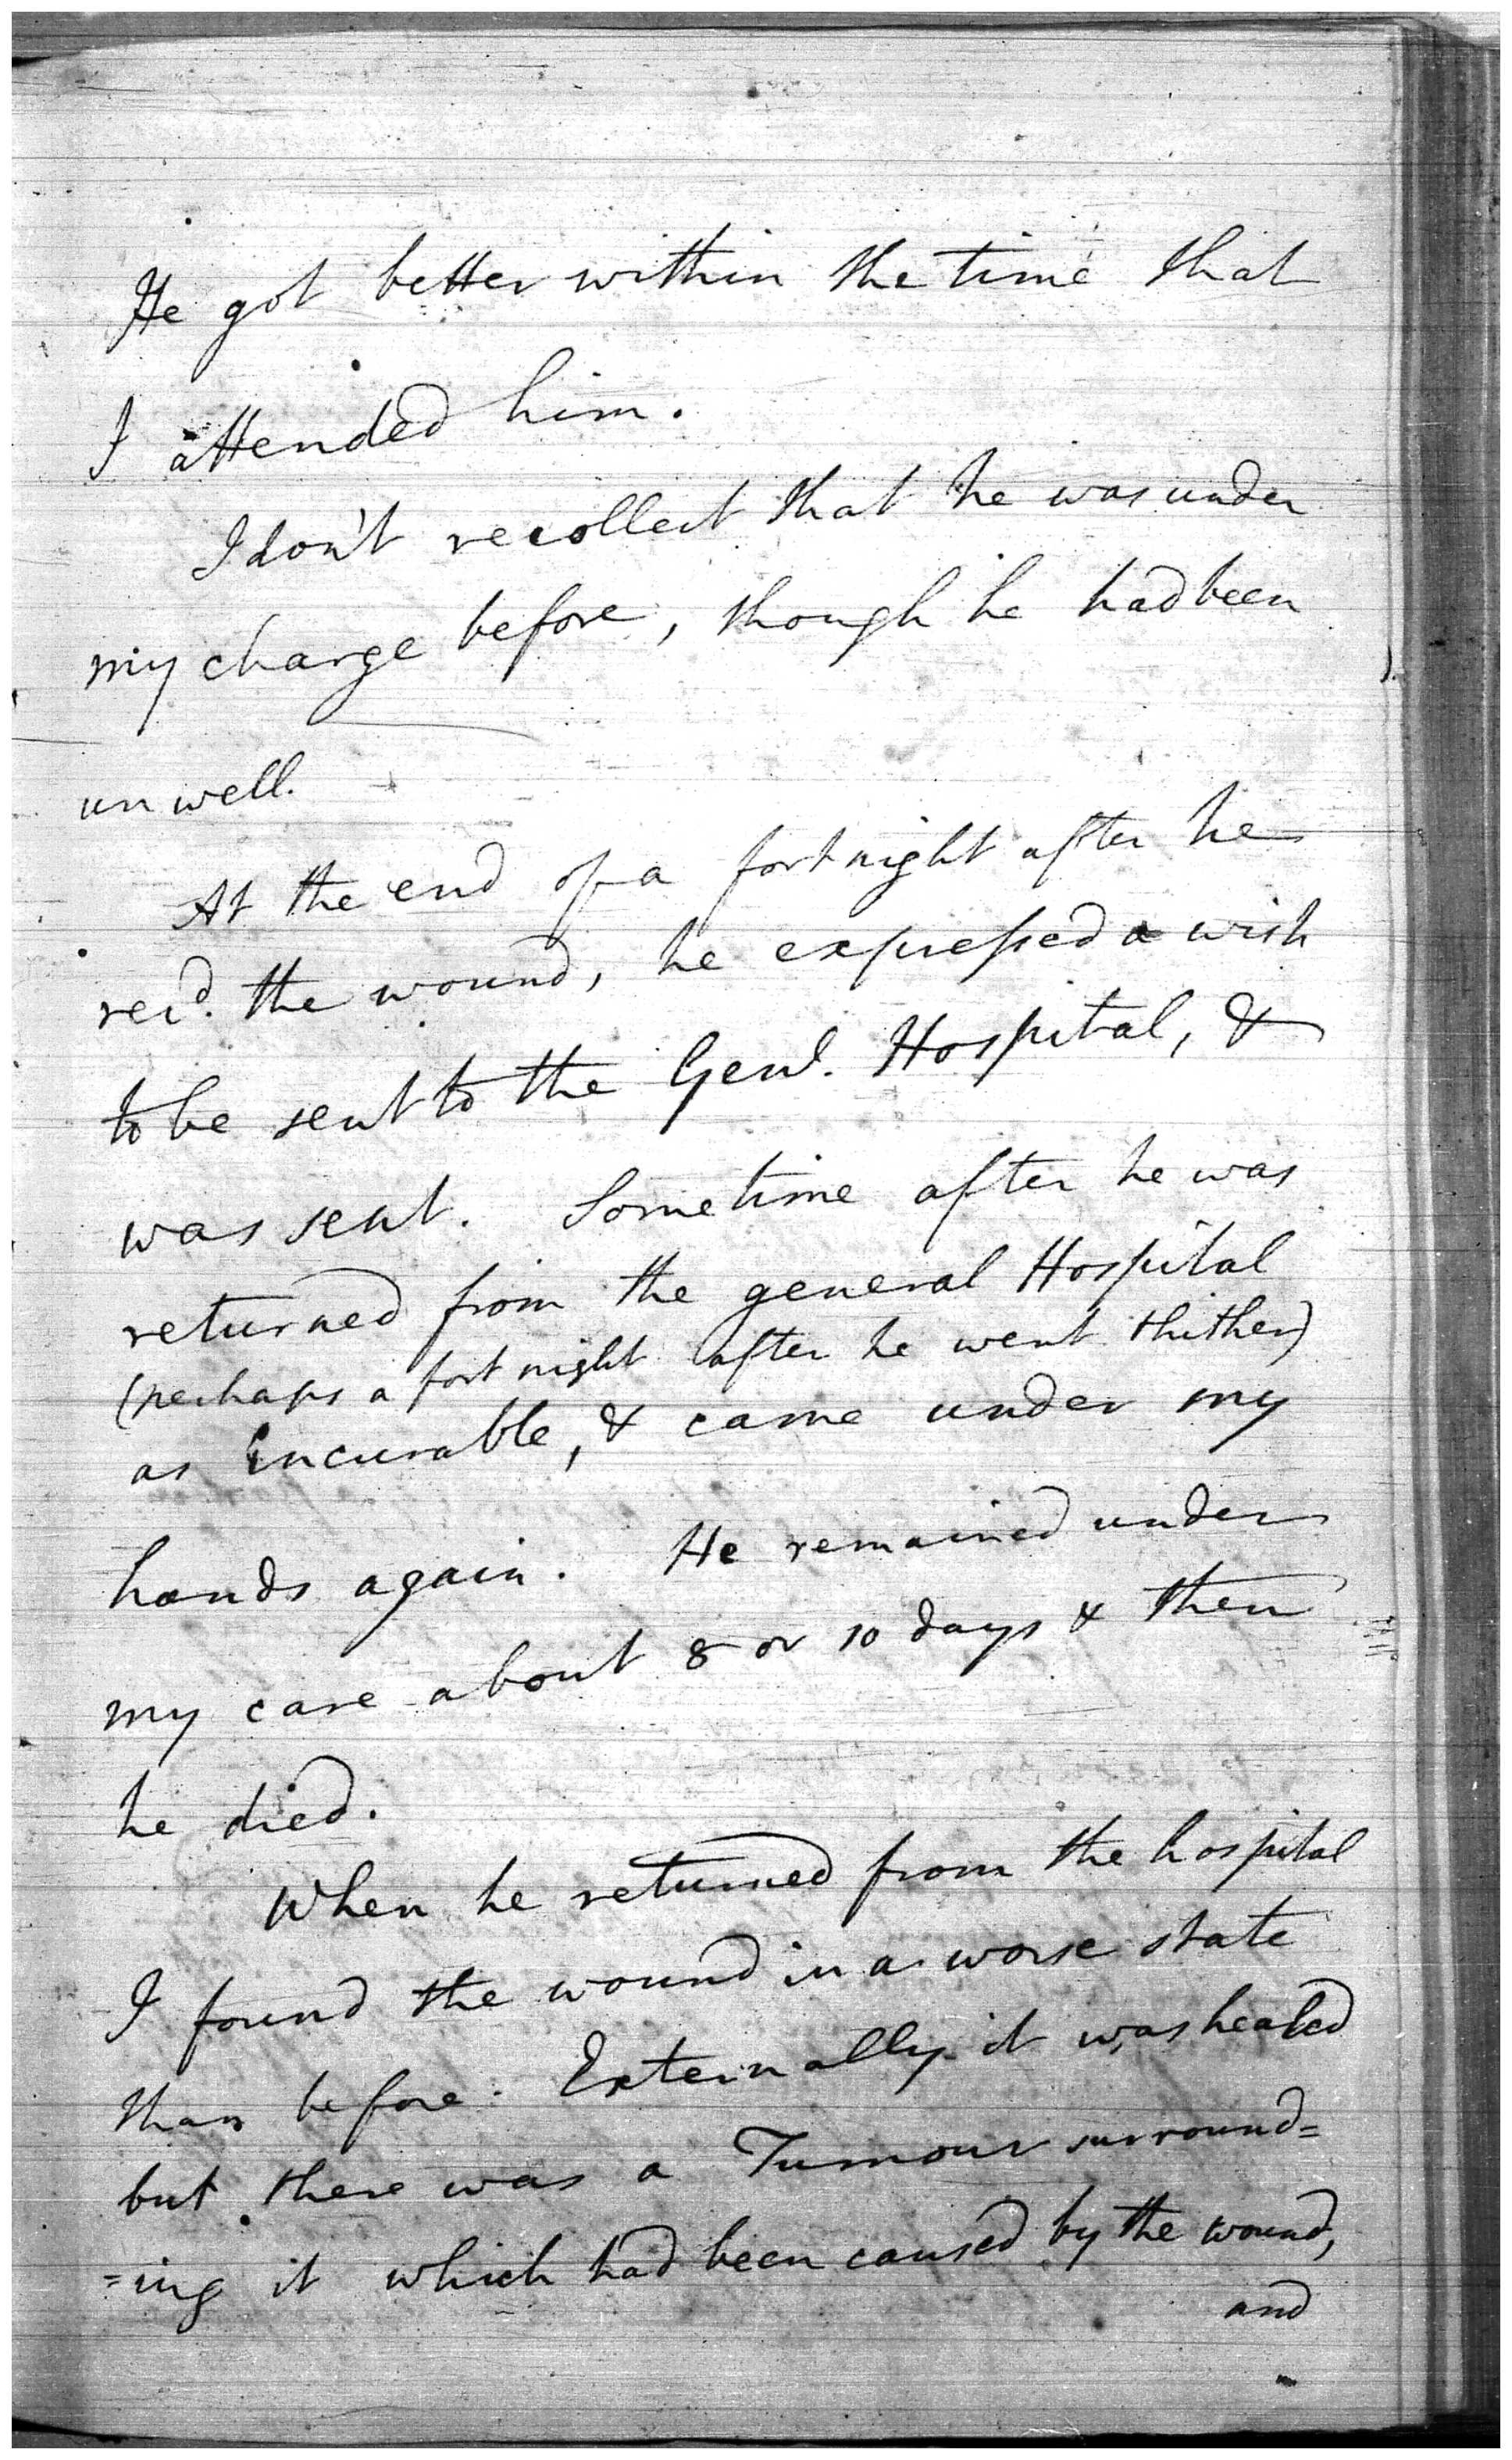 He got better within the time that
I attended him.
I don't recollect that he was under
my charge before, though he had been
unwell.
At the end of a fortnight after he
recd. the wound, he expressed a wish
to be sent to the Genl. Hospital, &
was sent. Sometime after he was
returned from the general Hospital
(perhaps a fortnight after he went thither)
as incurable, & came under my
hands again. He remained under
my care about 8 or 10 days & then
he died.
When he returned from the hospital
I found the wound in a worse state
than before. Externally it was healed
but there was a Tumour surround=
=ing it which had been caused by the wound,
and